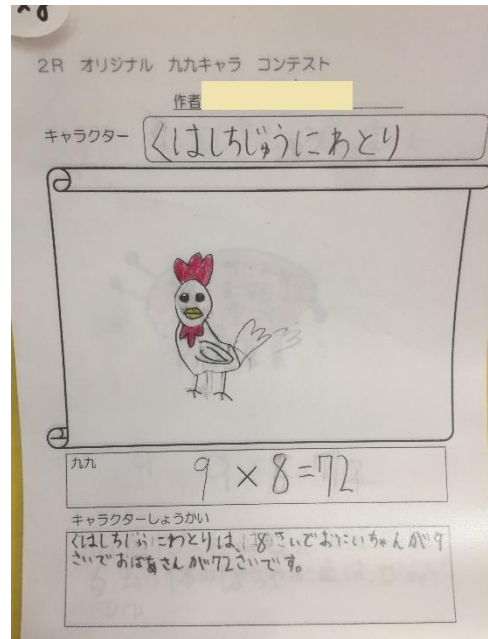 ×8
2R オリジナル 九九キャラ コンテスト
作者
キャラクター くはしちじゅうにわとり
九九
9×8=72
キャラクターしょうかい
くはしちじゅうにわとりは、8さいでおにいちゃんが9
さいでおばあさんが72さいです。